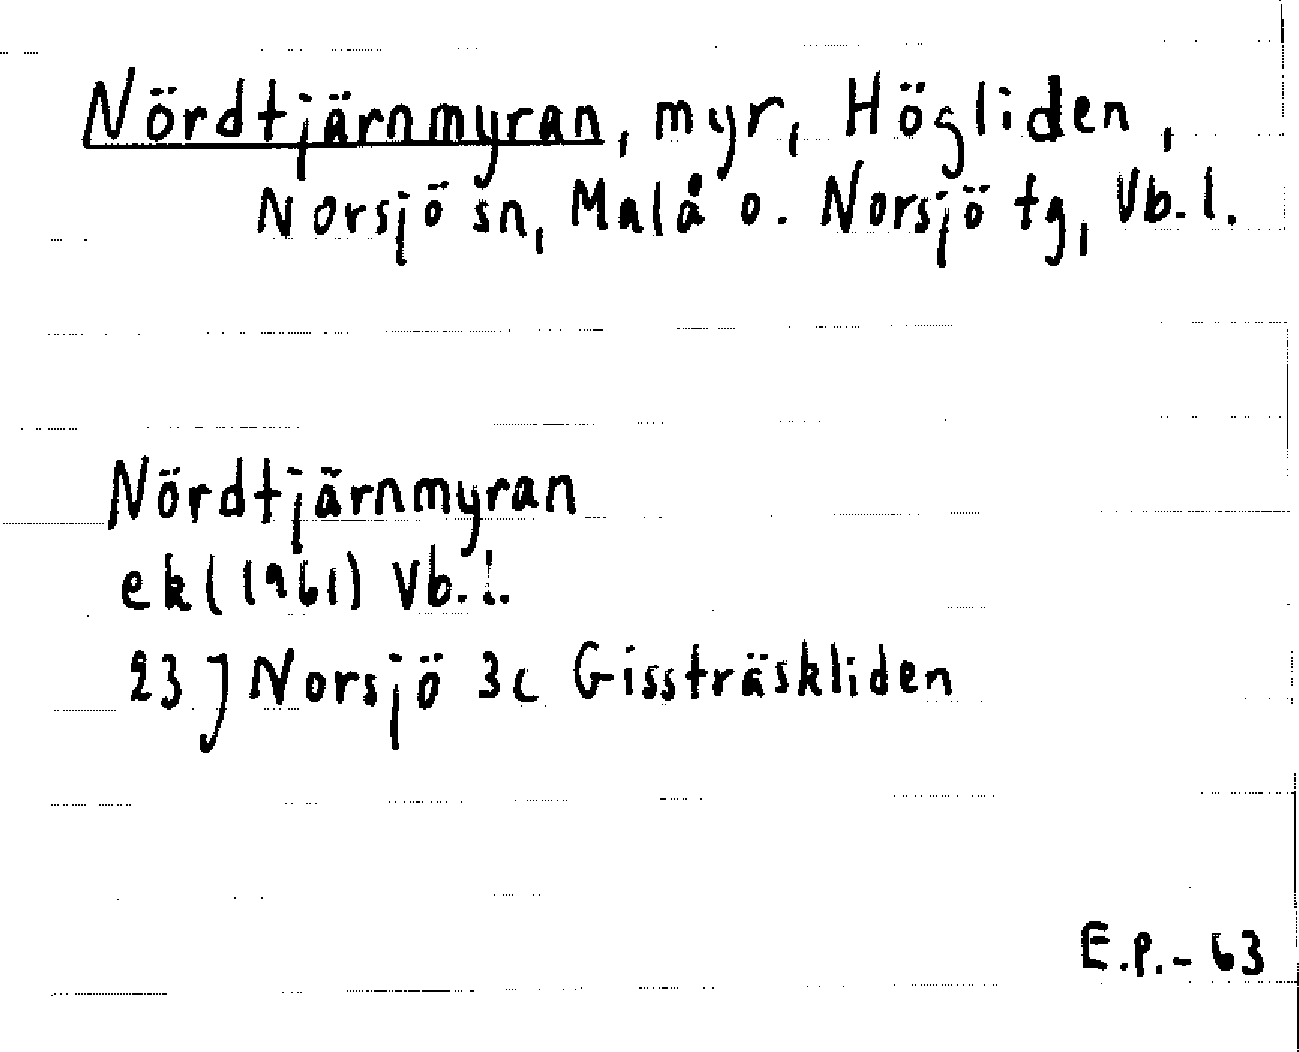 Nördtjärnmyran, myr, Högliden,
Norsjö sn, Malå o. Norsjö tg, Vb. l.
Nördtjärnmyran
ek (1961) Vb. l.
23 J Norsjö 3c Gissträskliden
E.P.-63